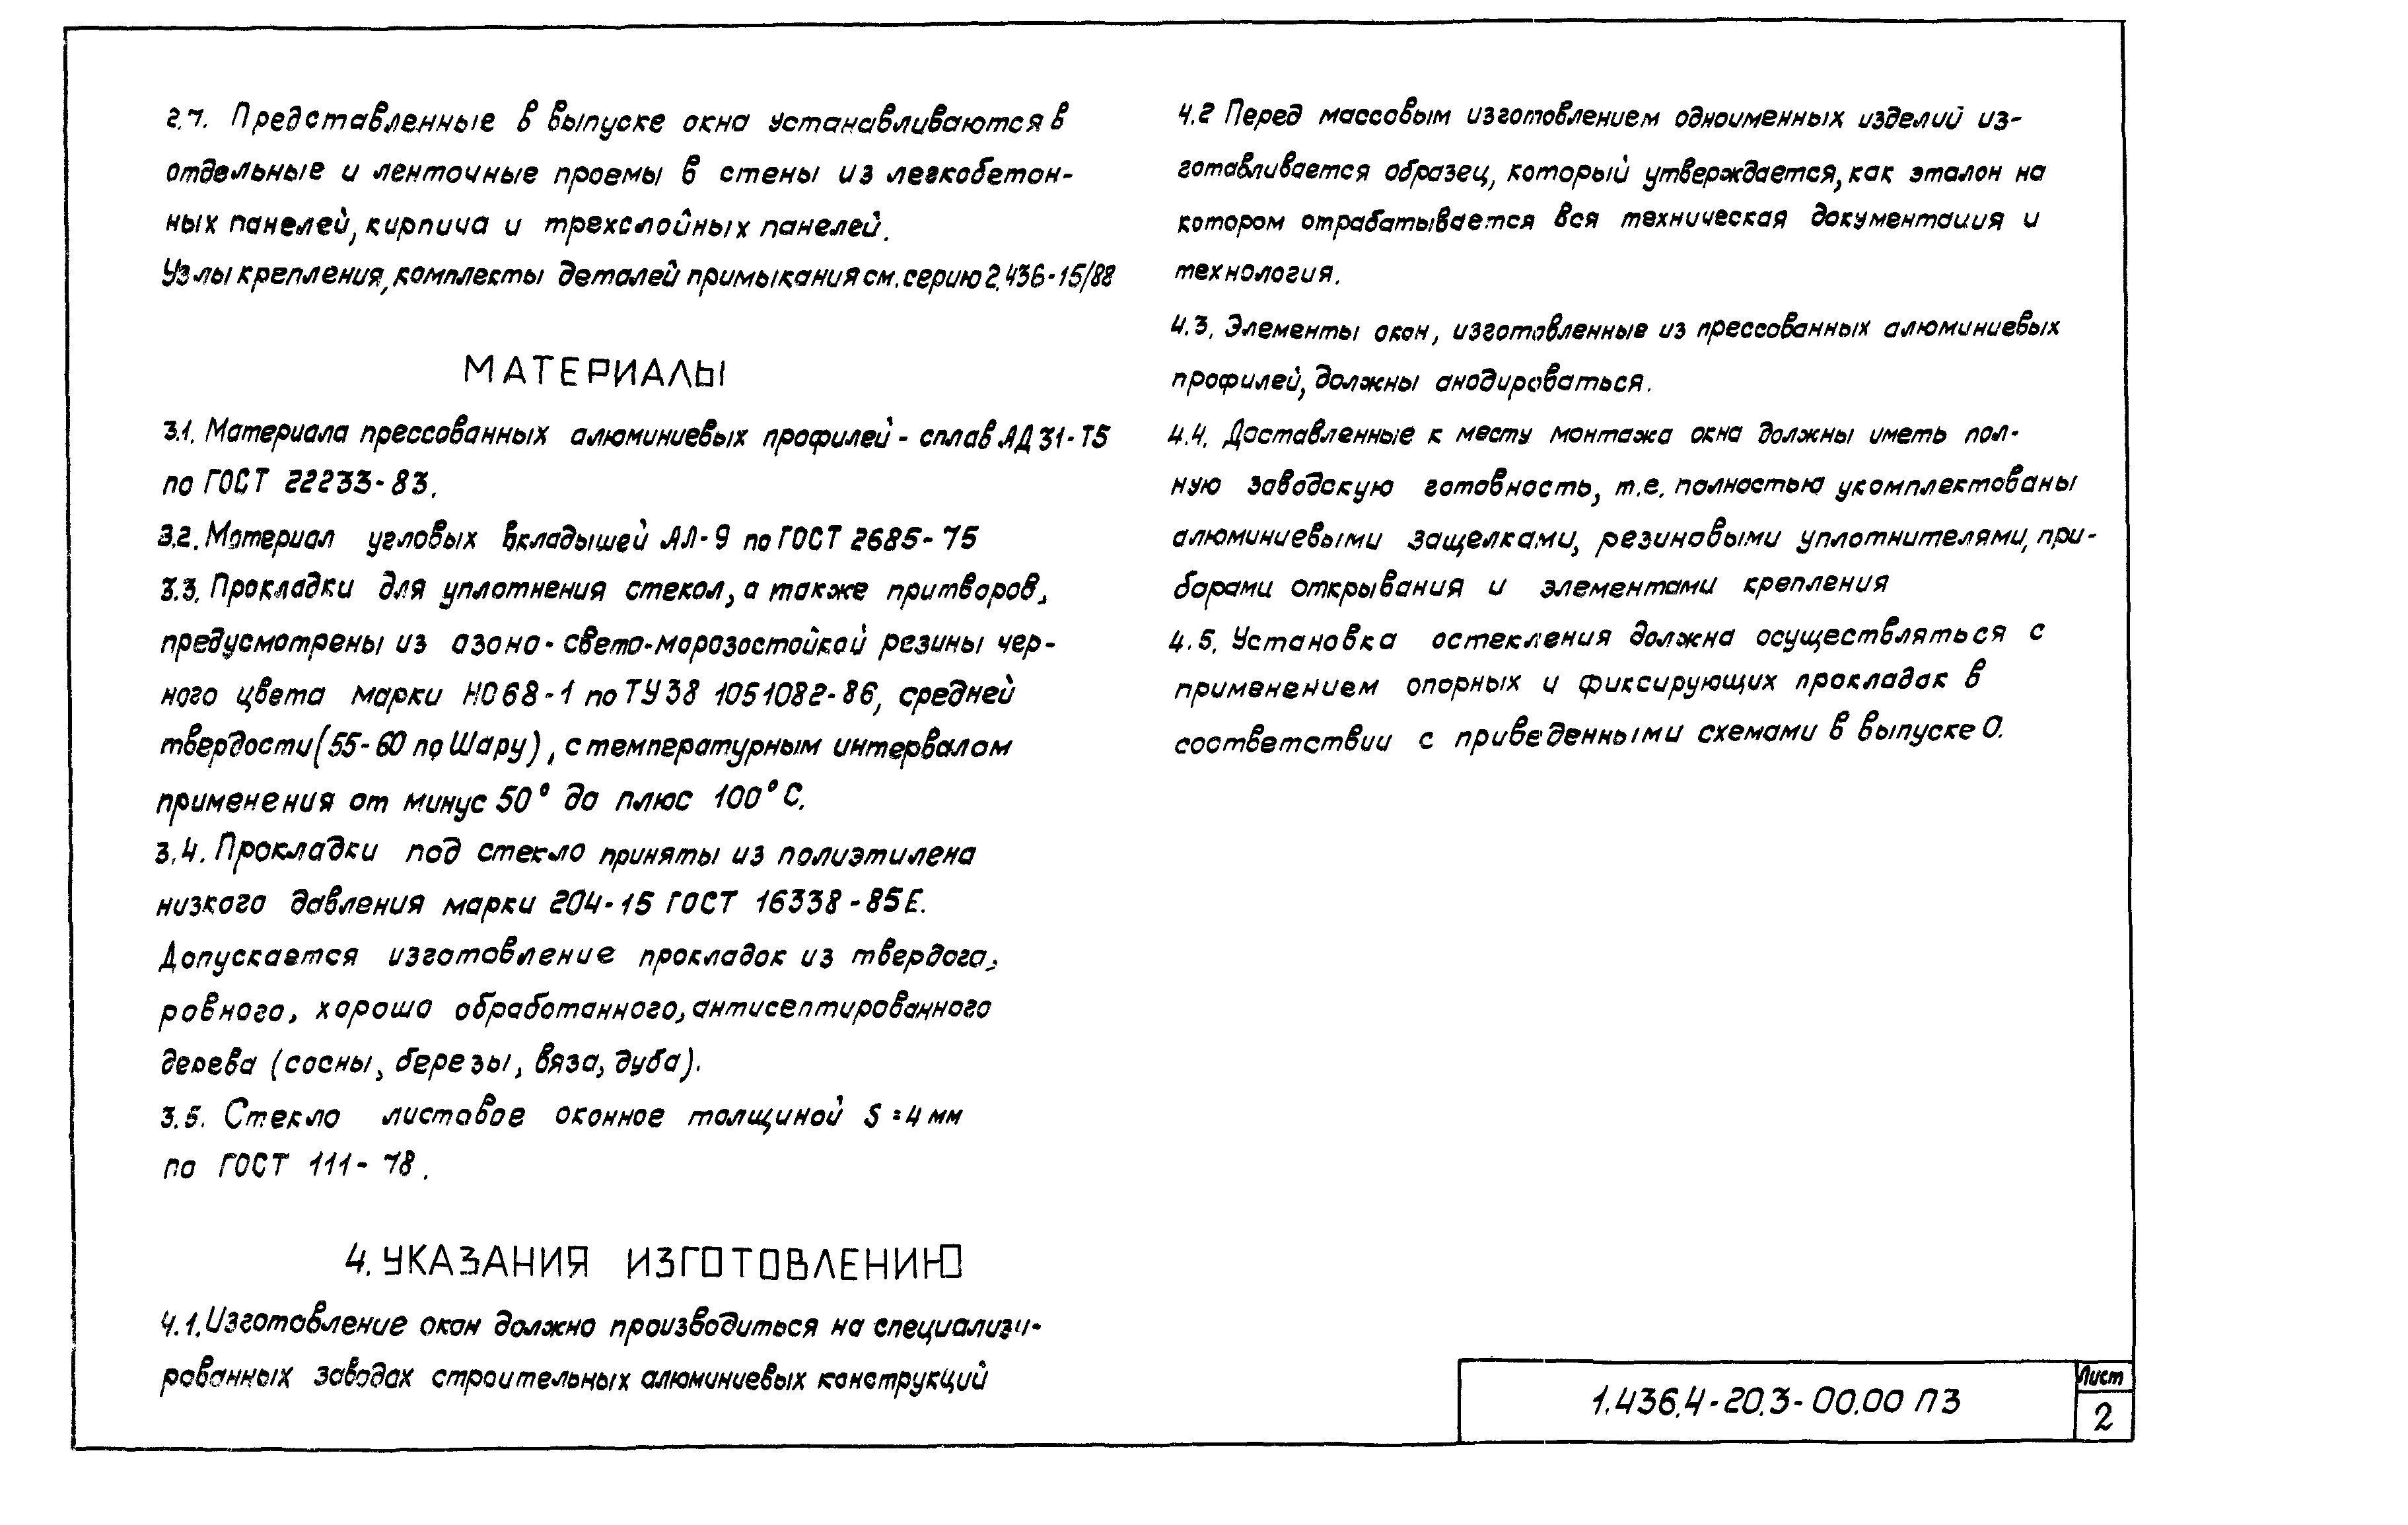 2.7. Представленные в выпуске окна устанавливаются в
отдельные и ленточные проемы в стены из легкобетон-
ных панелей, кирпича и трехслойных панелей.
Узлы крепления, комплекты деталей примыкания см. серию 2.436-15/88
МАТЕРИАЛЫ
3.1. Материала прессованных алюминиевых профилей - сплав АД 31-Т5
по ГОСТ 22233-83.
3.2. Материал угловых вкладышей АЛ-9 по ГОСТ 2685-75
3.3. Прокладки для уплотнения стекол, а также притворов,
предусмотрены из азоно-свето-морозостойкой резины чер-
ного цвета марки НО68-1 по ТУ38 1051082-86, средней
твердости (55-60 по Шару), с температурным интервалом
применения от минус 50° до плюс 100°С.
3.4. Прокладки под стекло приняты из полиэтилена
низкого давления марки 204-15 ГОСТ 16338-85Е.
Допускается изготовление прокладок из твердого,
ровного, хорошо обработанного, антисептированного
дерева (сосны, березы, вяза, дуба).
3.5. Стекло листовое оконное толщиной S=4 мм
по ГОСТ 111-78.
4. УКАЗАНИЯ ИЗГОТОВЛЕНИЮ
4.1. Изготовление окон должно производиться на специализи-
рованных заводах строительных алюминиевых конструкций
4.2 Перед массовым изготовлением одноименных изделий из-
готавливается образец, который утверждается, как эталон на
котором отрабатывается вся техническая документация и
технология.
4.3. Элементы окон, изготовленные из прессованных алюминиевых
профилей, должны анодироваться.
4.4. Доставленные к месту монтажа окна должны иметь пол-
ную заводскую готовность, т.е. полностью укомплектованы
алюминиевыми защелками, резиновыми уплотнителями, при-
борами открывания и элементами крепления
4.5. Установка остекления должна осуществляться с
применением опорных и фиксирующих прокладок в
соответствии с приведенными схемами в выпуске 0.
1.436.4-20.3-00.00 ПЗ
Лист
2